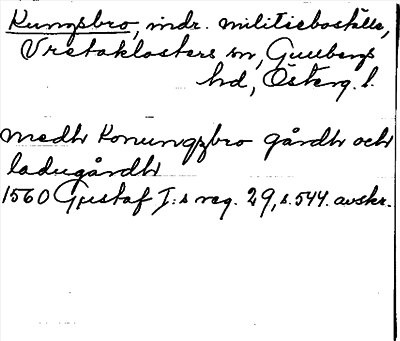 Kungsbro, indr. militieboställe,
Vretaklosters sn, Gullbergs
hd, Österg. l.
medh Konungzbro gårdh och
ladugårdh
1560 Gustaf I:s reg. 29, s. 544. avskr.